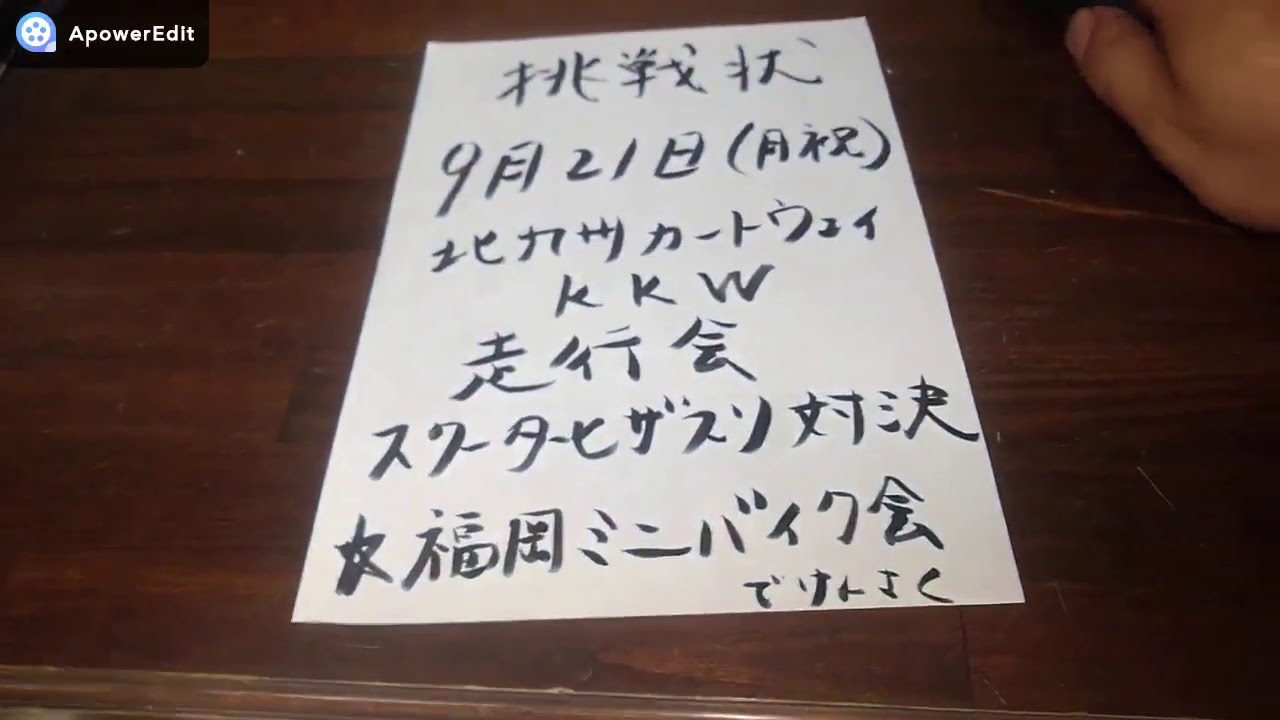 ApowerEdit
挑戦状
9月21日(月祝)
北九州カートウェイ
KKW
走行会
スクーターヒザスリ対決
★福岡ミニバイク会
でけんさく